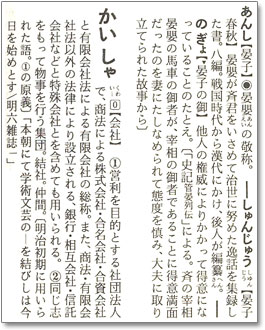 あんし【晏子】◉晏嬰の敬称。――しゅんじゅう【晏子
春秋】晏嬰が斉君をいさめて治世に努めた逸話を集録し
た書。八編。戦国時代から漢代にかけ、後人が編纂。――
のぎょ【晏子の御】他人の権威によりかかって得意にな
っていることのたとえ。〔「史記管晏列伝」による。斉の宰相
晏嬰の馬車の御者が、宰相の御者であることに得意満面
だったのを妻にたしなめられて態度を慎み、大夫に取り
立てられた故事から〕
かいしゃ 0【会社】①営利を目的とする社団法人
で、商法による株式会社・合名会社・合資会社
と有限会社法による有限会社の総称。また、商法・有限会
社法以外の法律により設立される、銀行・相互会社・信託
会社などと特殊会社とを含めても用いられる。②同じ志
をもって物事を行う集団。結社。仲間。〔明治初期に用いら
れた語。①の原義〕「本朝にて学術文芸の―を結びしは今
日を始めとす/明六雑誌一」